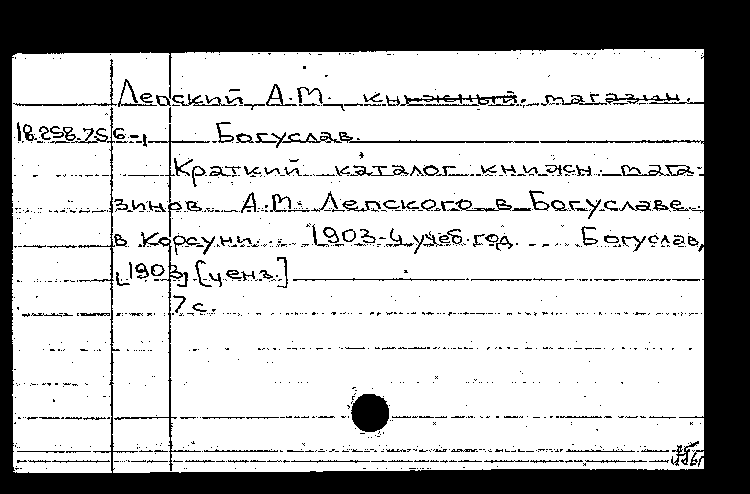 Лепский, А.М., книжный магазин.
18.258.756-1 Богуслав.
Краткий каталог книжн. мага-
зинов А.М. Лепского в Богуславе
в Корсуни... 1903-4 учеб. год. Богуслав,
[1903] [ценз.]
7 с.